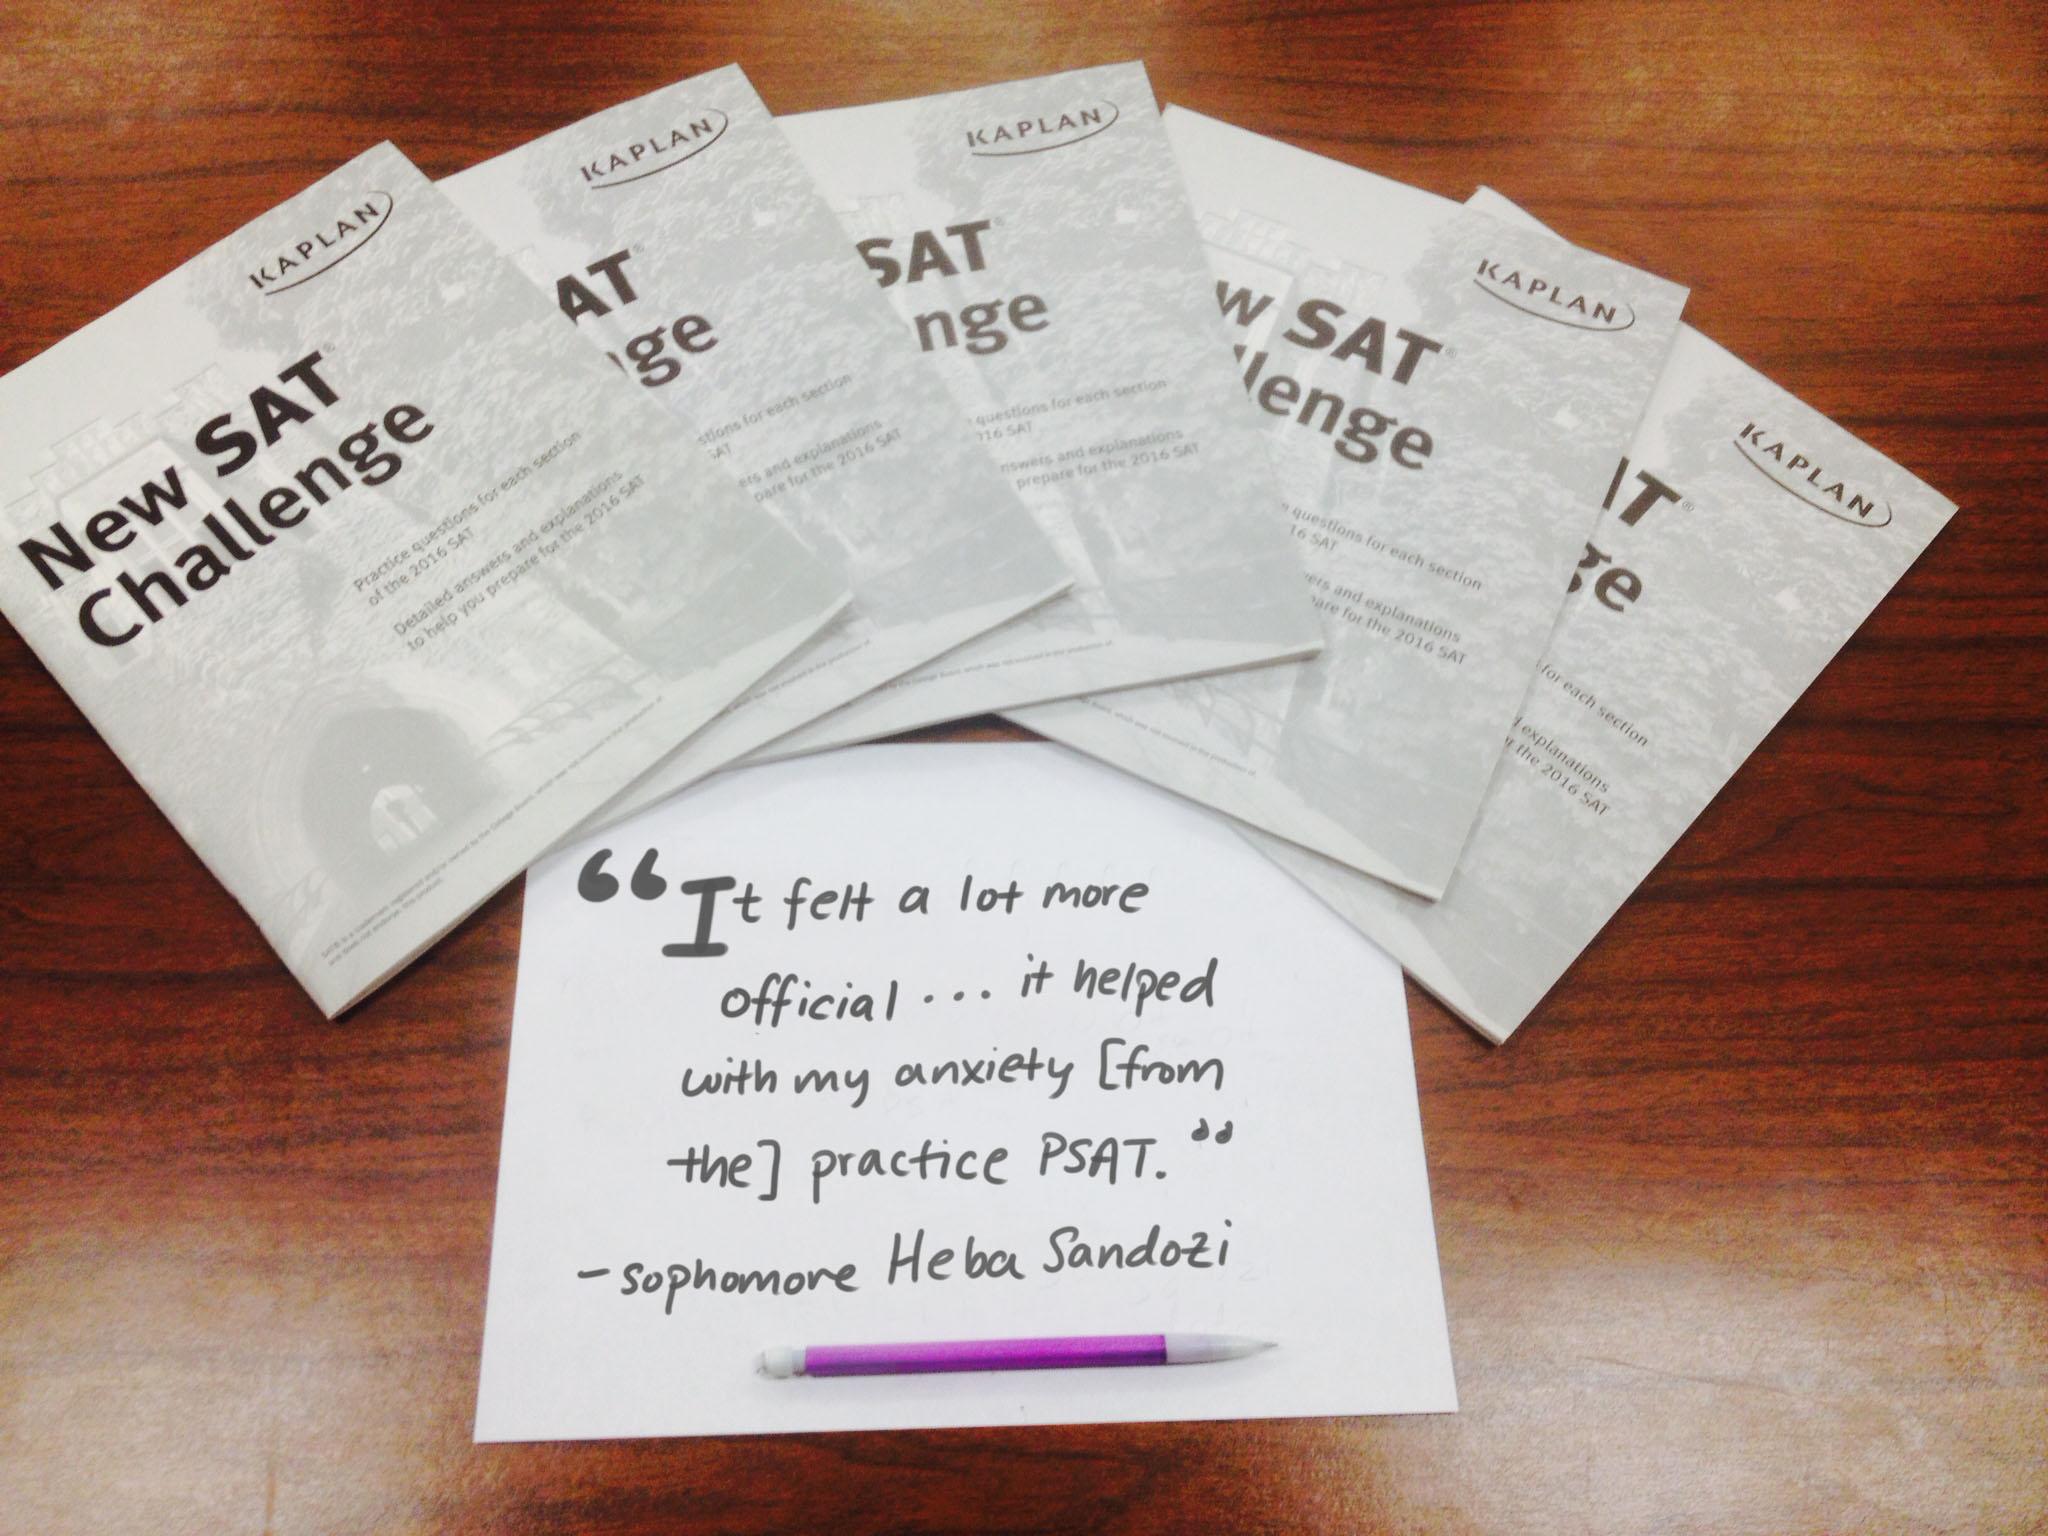 KAPLAN
New SAT®
Challenge
Practice questions for each section
of the 2016 SAT
Detailed answers and explanations
to help you prepare for the 2016 SAT
KAPLAN
AT®
ge
stions for each section
SAT
ers and explanations
pare for the 2016 SAT
KAPLAN
SAT®
nge
questions for each section
016 SAT
nswers and explanations
prepare for the 2016 SAT
KAPLAN
w SAT®
lenge
questions for each section
16 SAT
ers and explanations
pare for the 2016 SAT
KAPLAN
AT®
ge
for each section
explanations
the 2016 SAT
“It felt a lot more
official ... it helped
with my anxiety [from
the] practice PSAT.”
-sophomore Heba Sandozi